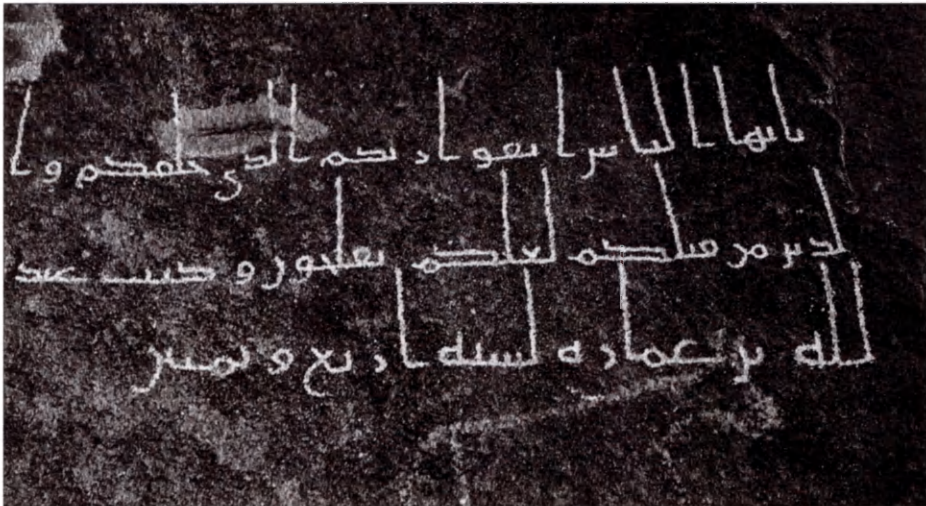 يايها الناس اتقوا ربكم الذي خلقكم وا
لذين من قبلكم لعلكم تفلحون وكتب عبد
الله بن عماره لسنه اربع وثمنين